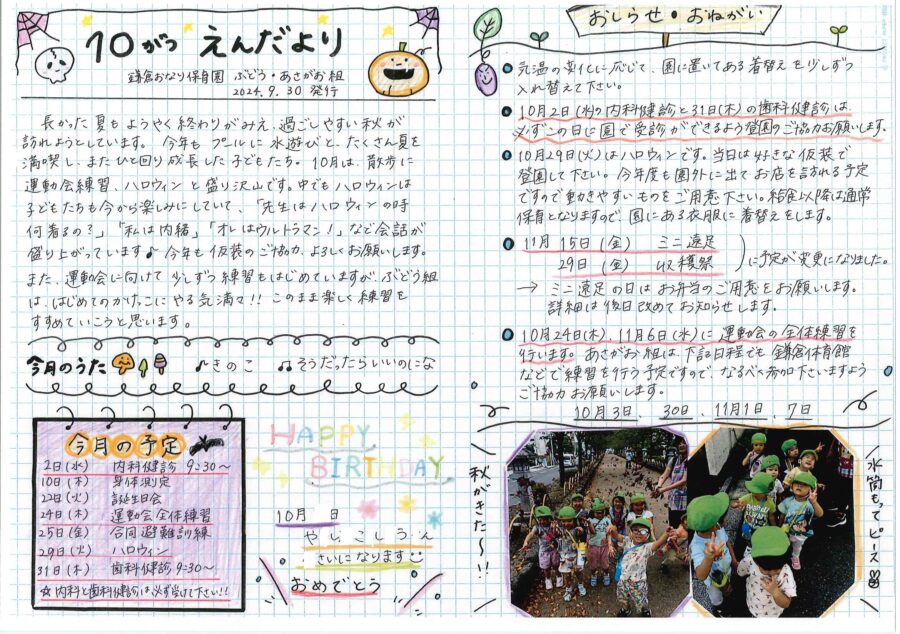 10がつ えんだより
鎌倉おなり保育園 ぶどう・あさがお組
2024.9.30 発行
長かった夏もようやく終わりがみえ、過ごしやすい秋が
訪れようとしています。今年もプールに水遊びと、たくさん夏を
満喫し、またひと回り成長した子どもたち。10月は、散歩に
運動会練習、ハロウィンと盛り沢山です。中でもハロウィンは
子どもたちも今から楽しみにしていて、「先生はハロウィンの時
何着るの?」「私は内緒」「オレはウルトラマン!」など会話が
盛り上がっています♪ 今年も仮装のご協力、よろしくお願いします。
また、運動会に向けて少しずつ練習もはじめていますが、ぶどう組
は、はじめてのかけっこにやる気満々!! このまま楽しく練習を
すすめていこうと思います。
今月のうた ♪きのこ ♫そうだったらいいのにな
今月の予定
2日(水) 内科健診 9:30〜
10日(木) 身体測定
22日(火) 誕生日会
24日(木) 運動会全体練習
25日(金) 合同避難訓練
29日(火) ハロウィン
31日(木) 歯科健診 9:30〜
☆内科と歯科健診は必ず受けて下さい!!
HAPPY
BIRTHDAY
10月 日
さいになります
おめでとう
おしらせ・おねがい
気温の変化に応じて、園に置いてある着替えを少しずつ
入れ替えて下さい。
10月2日(水)の内科健診と31日(木)の歯科健診は、
必ずこの日に園で受診ができるよう登園のご協力お願いします。
10月29日(火)はハロウィンです。当日は好きな仮装で
登園して下さい。今年度も園外に出てお店を訪れる予定
ですので動きやすいものをご用意下さい。給食以降は通常
保育となりますので、園にある衣服に着替えをします。
11月 15日(金) ミニ遠足
29日(金) 収穫祭 )に予定が変更になりました。
→ ミニ遠足の日はお弁当のご用意をお願いします。
詳細は後日改めてお知らせします。
10月24日(木)、11月6日(水)に運動会の全体練習を
行います。あさがお組は、下記日程でも鎌倉体育館
などで練習を行う予定ですので、なるべく参加下さいますよう
ご協力お願いします。
10月3日、30日、11月1日、7日
秋がきた〜!!
水筒もってピース